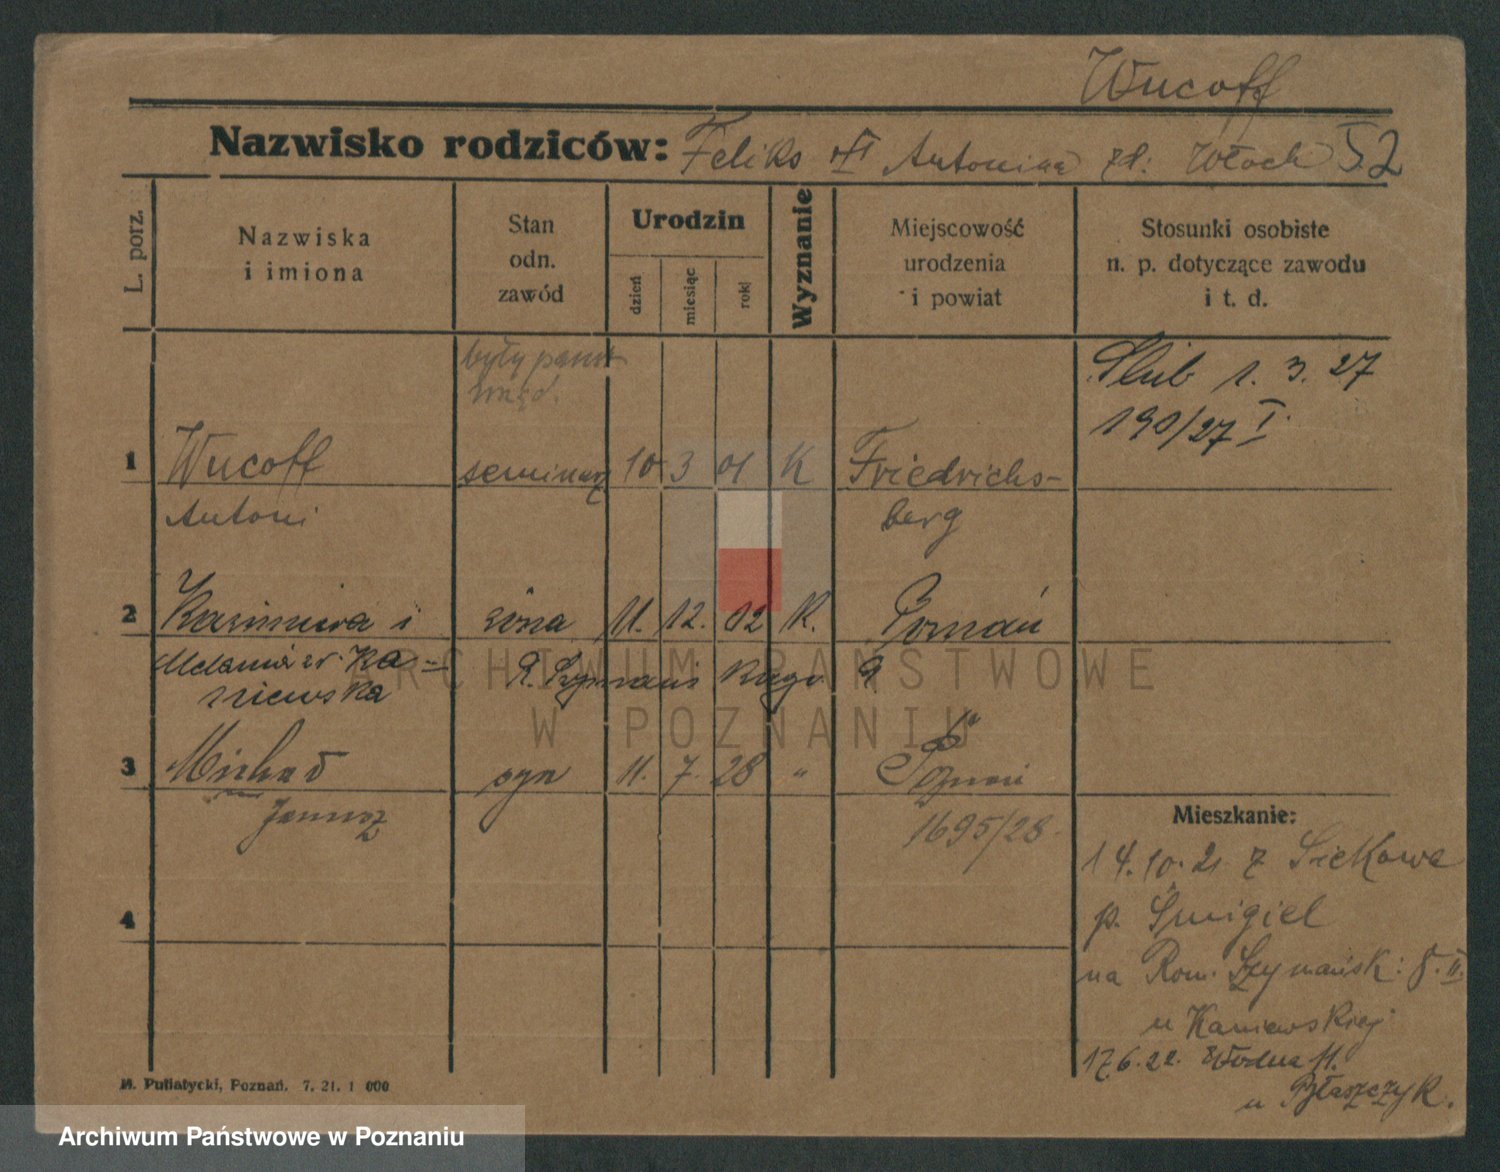 Wucoff
Nazwisko rodziców: Feliks Antonina zd: Włoch 52
L. porz.
Nazwiska i imiona
Stan odn. zawód
Urodzin
dzień
miesiąc
rok
Wyznanie
Miejscowość urodzenia i powiat
Stosunki osobiste n. p. dotyczące zawodu i t. d.
były
Ślub 1. 3. 27
190/27 I
1 Wucoff seminarz 10 3 01 K Friedrichs-
Antoni berg
2 Kazimiera i żona 11. 12. 02 K. Poznań
Melania zd. Ka=
niewska
3 Michał syn 11. 7. 28 " Poznań
Janusz 1695/28
Mieszkanie:
14.10.21 z Siekowa
p. Śmigiel
4
na Rom. Szymańsk: 8. II.
u Kaniewskiej
17.6.22. Wodna 11.
u Błaszczyk.
M. Putiatycki, Poznań. 7. 21. 1 000
ARCHIWUM PAŃSTWOWE
W POZNANIU
Archiwum Państwowe w Poznaniu